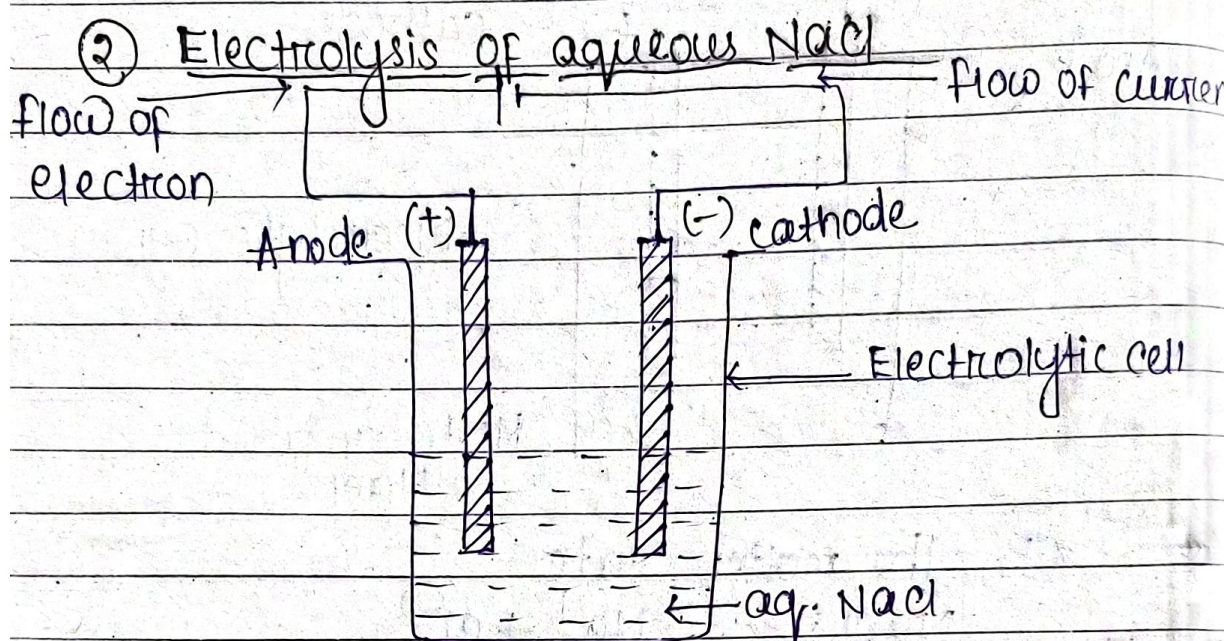 ② Electrolysis of aqueous NaCl
flow of electron
flow of curren
Anode (+)
(-) cathode
Electrolytic cell
aq. NaCl.